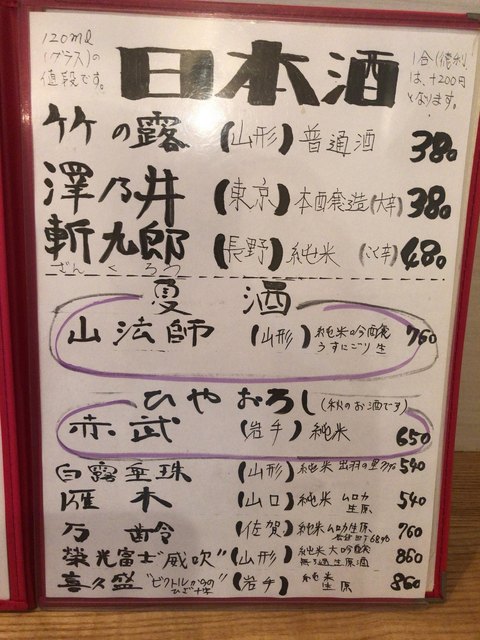 120ml
(グラス)の
値段です。
日本酒
1合(徳利)
は、+200円
となります。
竹の露 (山形) 普通酒 380
澤乃井 (東京) 本醸造(大辛) 380
斬九郎 (長野) 純米 (こく辛) 480
ざんくろう
夏酒
山法師 (山形) 純米吟醸 うすにごり 生 760
ひやおろし (秋のお酒です)
赤武 (岩手) 純米 650
白露垂珠 (山形) 純米 出羽の里 540
雁木 (山口) 純米 ムロカ 生原 540
万齢 (佐賀) 純米 ムロカ生原 760
榮光冨士"威吹" (山形) 純米大吟醸 無ろ過生原酒 860
喜久盛 "ビクトルからの ひざ十字" (岩手) 純米 生原 860